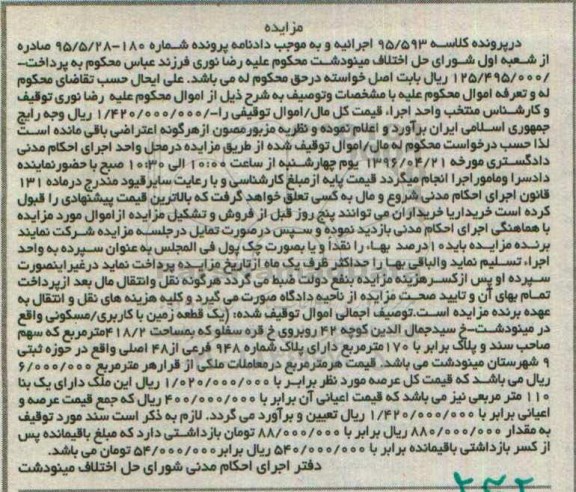 مزایده
درپرونده کلاسه ۹۵/۵۹۳ اجرائیه و به موجب دادنامه پرونده شماره ۱۸۰-۹۵/۵/۲۸ صادره
از شعبه اول شورای حل اختلاف مینودشت محکوم علیه رضا نوری فرزند عباس محکوم به پرداخت-
/۱۲۵/۴۹۵/۰۰۰ ریال بابت اصل خواسته درحق محکوم له می باشد. علی ایحال حسب تقاضای محکوم
له و تعرفه اموال محکوم علیه با مشخصات وتوصیف به شرح ذیل از اموال محکوم علیه رضا نوری توقیف
و کارشناس منتخب واحد اجراء قیمت کل مال/اموال توقیفی را-/۱/۴۲۰/۰۰۰/۰۰۰ ریال وجه رایج
جمهوری اسلامی ایران برآورد و اعلام نموده و نظریه مزبورمصون ازهرگونه اعتراضی باقی مانده است
لذا حسب درخواست محکوم له مال/اموال توقیف شده از طریق مزایده درمحل واحد اجرای احکام مدنی
دادگستری مورخه ۱۳۹۶/۰۴/۲۱ یوم چهارشنبه از ساعت ۱۰:۰۰ الی ۱۰:۳۰ صبح با حضورنماینده
دادسرا ومامور اجرا انجام میگردد قیمت پایه ازمبلغ کارشناسی و با رعایت سایرقیود مندرج درماده ۱۳۱
قانون اجرای احکام مدنی شروع و مال به کسی تعلق خواهد گرفت که بالاترین قیمت پیشنهادی را قبول
کرده است خریداریا خریداران می توانند پنج روز قبل از فروش و تشکیل مزایده ازاموال مورد مزایده
با هماهنگی اجرای احکام مدنی بازدید نموده و سپس درصورت تمایل درجلسه مزایده شرکت نمایند
برنده مزایده باید ۱۰درصد بهاء را نقداً و یا بصورت چک پول فی المجلس به عنوان سپرده به واحد
اجراء تسلیم نماید والباقی بها را حداکثر ظرف یک ماه ازتاریخ مزایده پرداخت نماید درغیراینصورت
سپرده او پس ازکسرهزینه مزایده بنفع دولت ضبط می گردد هرگونه نقل وانتقال مال بعد ازپرداخت
تمام بهای آن و تایید صحت مزایده از ناحیه دادگاه صورت می گیرد و کلیه هزینه های نقل و انتقال به
عهده برنده مزایده است.توصیف اجمالی اموال توقیف شده: (یک قطعه زمین با کاربری/مسکونی واقع
در مینودشت-خ سیدجمال الدین کوچه ۴۲ روبروی خ قره سفلو که بمساحت ۴۱۸/۲مترمربع که سهم
صاحب سند و پلاک برابر با ۱۷۰مترمربع دارای پلاک شماره ۹۴۸ فرعی از۴۸ اصلی واقع در حوزه ثبتی
۹ شهرستان مینودشت می باشد. قیمت هرمترمربع درمعاملات ملکی از قرارهر مترمربع ۶/۰۰۰/۰۰۰
ریال می باشد که قیمت کل عرصه مورد نظر برابر با ۱/۰۲۰/۰۰۰/۰۰۰ ریال این ملک دارای یک بنا
۱۱۰ متر مربعی نیز می باشد که قیمت اعیانی آن برابر با ۴۰۰/۰۰۰/۰۰۰ ریال که جمع قیمت عرصه و
اعیانی برابر با ۱/۴۲۰/۰۰۰/۰۰۰ ریال تعیین و برآورد می گردد. لازم به ذکر است سند مورد توقیف
به مقدار ۸۸۰/۰۰۰/۰۰۰ ریال برابر با ۸۸/۰۰۰/۰۰۰ تومان بازداشتی دارد که مبلغ باقیمانده پس
از کسر بازداشتی باقیمانده برابر با ۵۴۰/۰۰۰/۰۰۰ ریال برابر۵۴/۰۰۰/۰۰۰ تومان می باشد.
دفتر اجرای احکام مدنی شورای حل اختلاف مینودشت